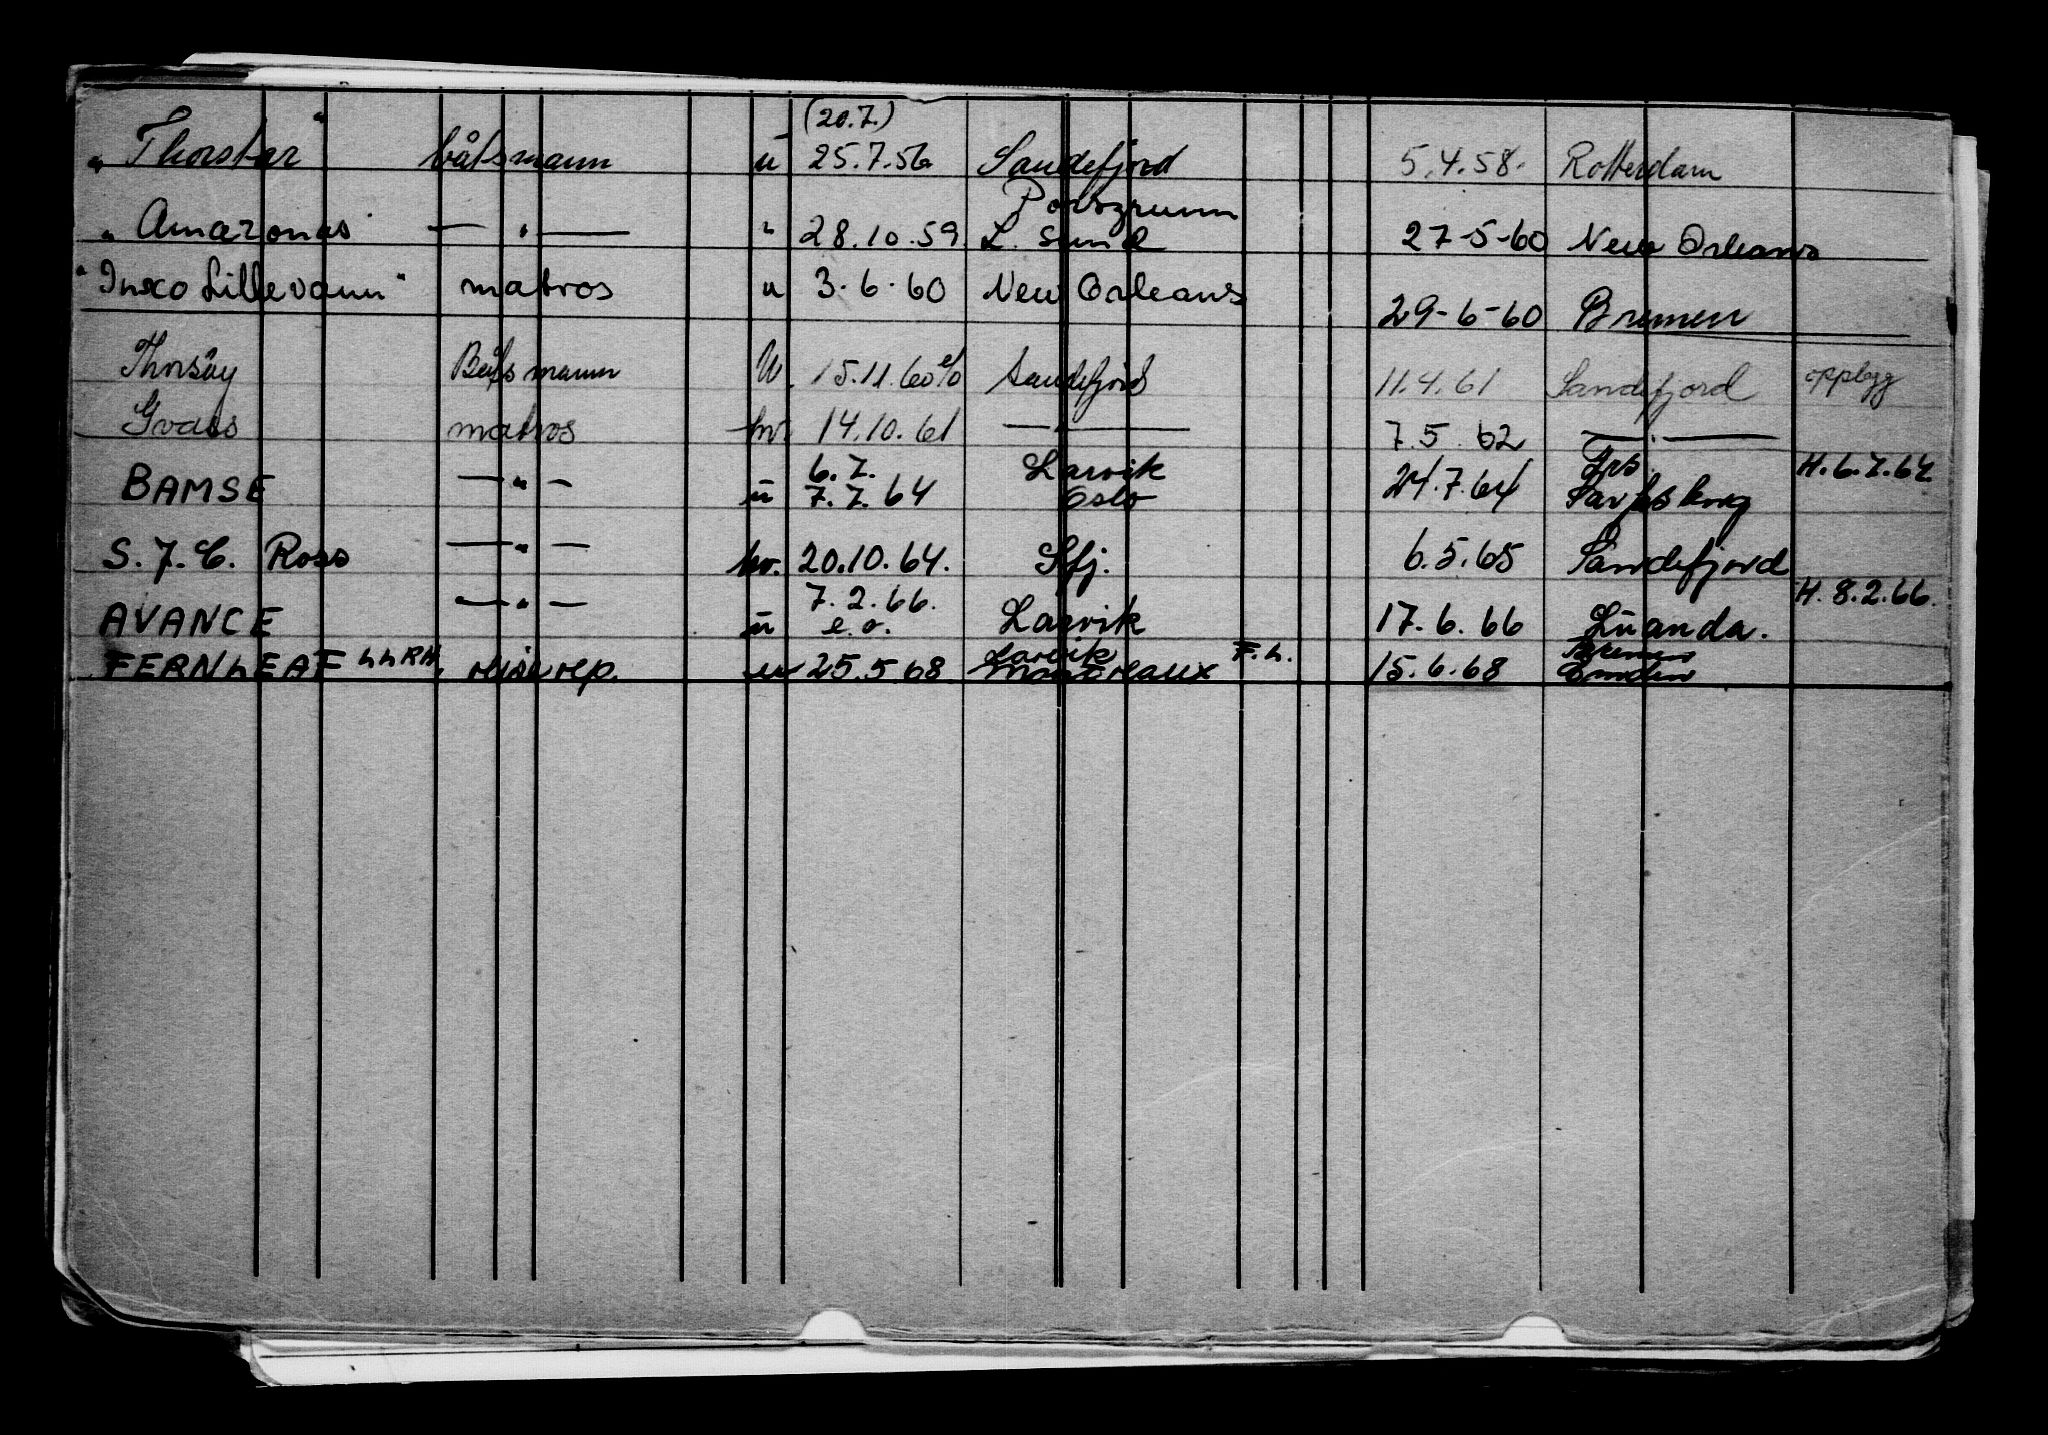 (20.7.)
" Thorstar " båtsmann u 25.7.56 Sandefjord 5.4.58. Rotterdam
Porsgrunn
" Amazonas " — " — " 28.10.59 L. sund 27-5-60 New Orleans
" Lillevann " matros u 3.6.60 New Orleans
29-6-60 Bremen
Thorsøy Båtsmann U. 15.11.60 Sandefjord 11.4.61 Sandefjord opplegg
matros hv. 14.10.61 — " — 7.5.62 — " —
6.7. Larvik
BAMSE — " — u 7.7.64 Oslo 24.7.64 Sarpsborg
S. J. C. Ross — " — hv. 20.10.64. Sfj. 6.5.65 Sandefjord
7.2.66. H. 8.2.66.
AVANCE — " — u e.o. Larvik 17.6.66 Luanda.
Larvik F.L. Bremen
FERNLEAF LLRH u 25.5.68 15.6.68 Emden